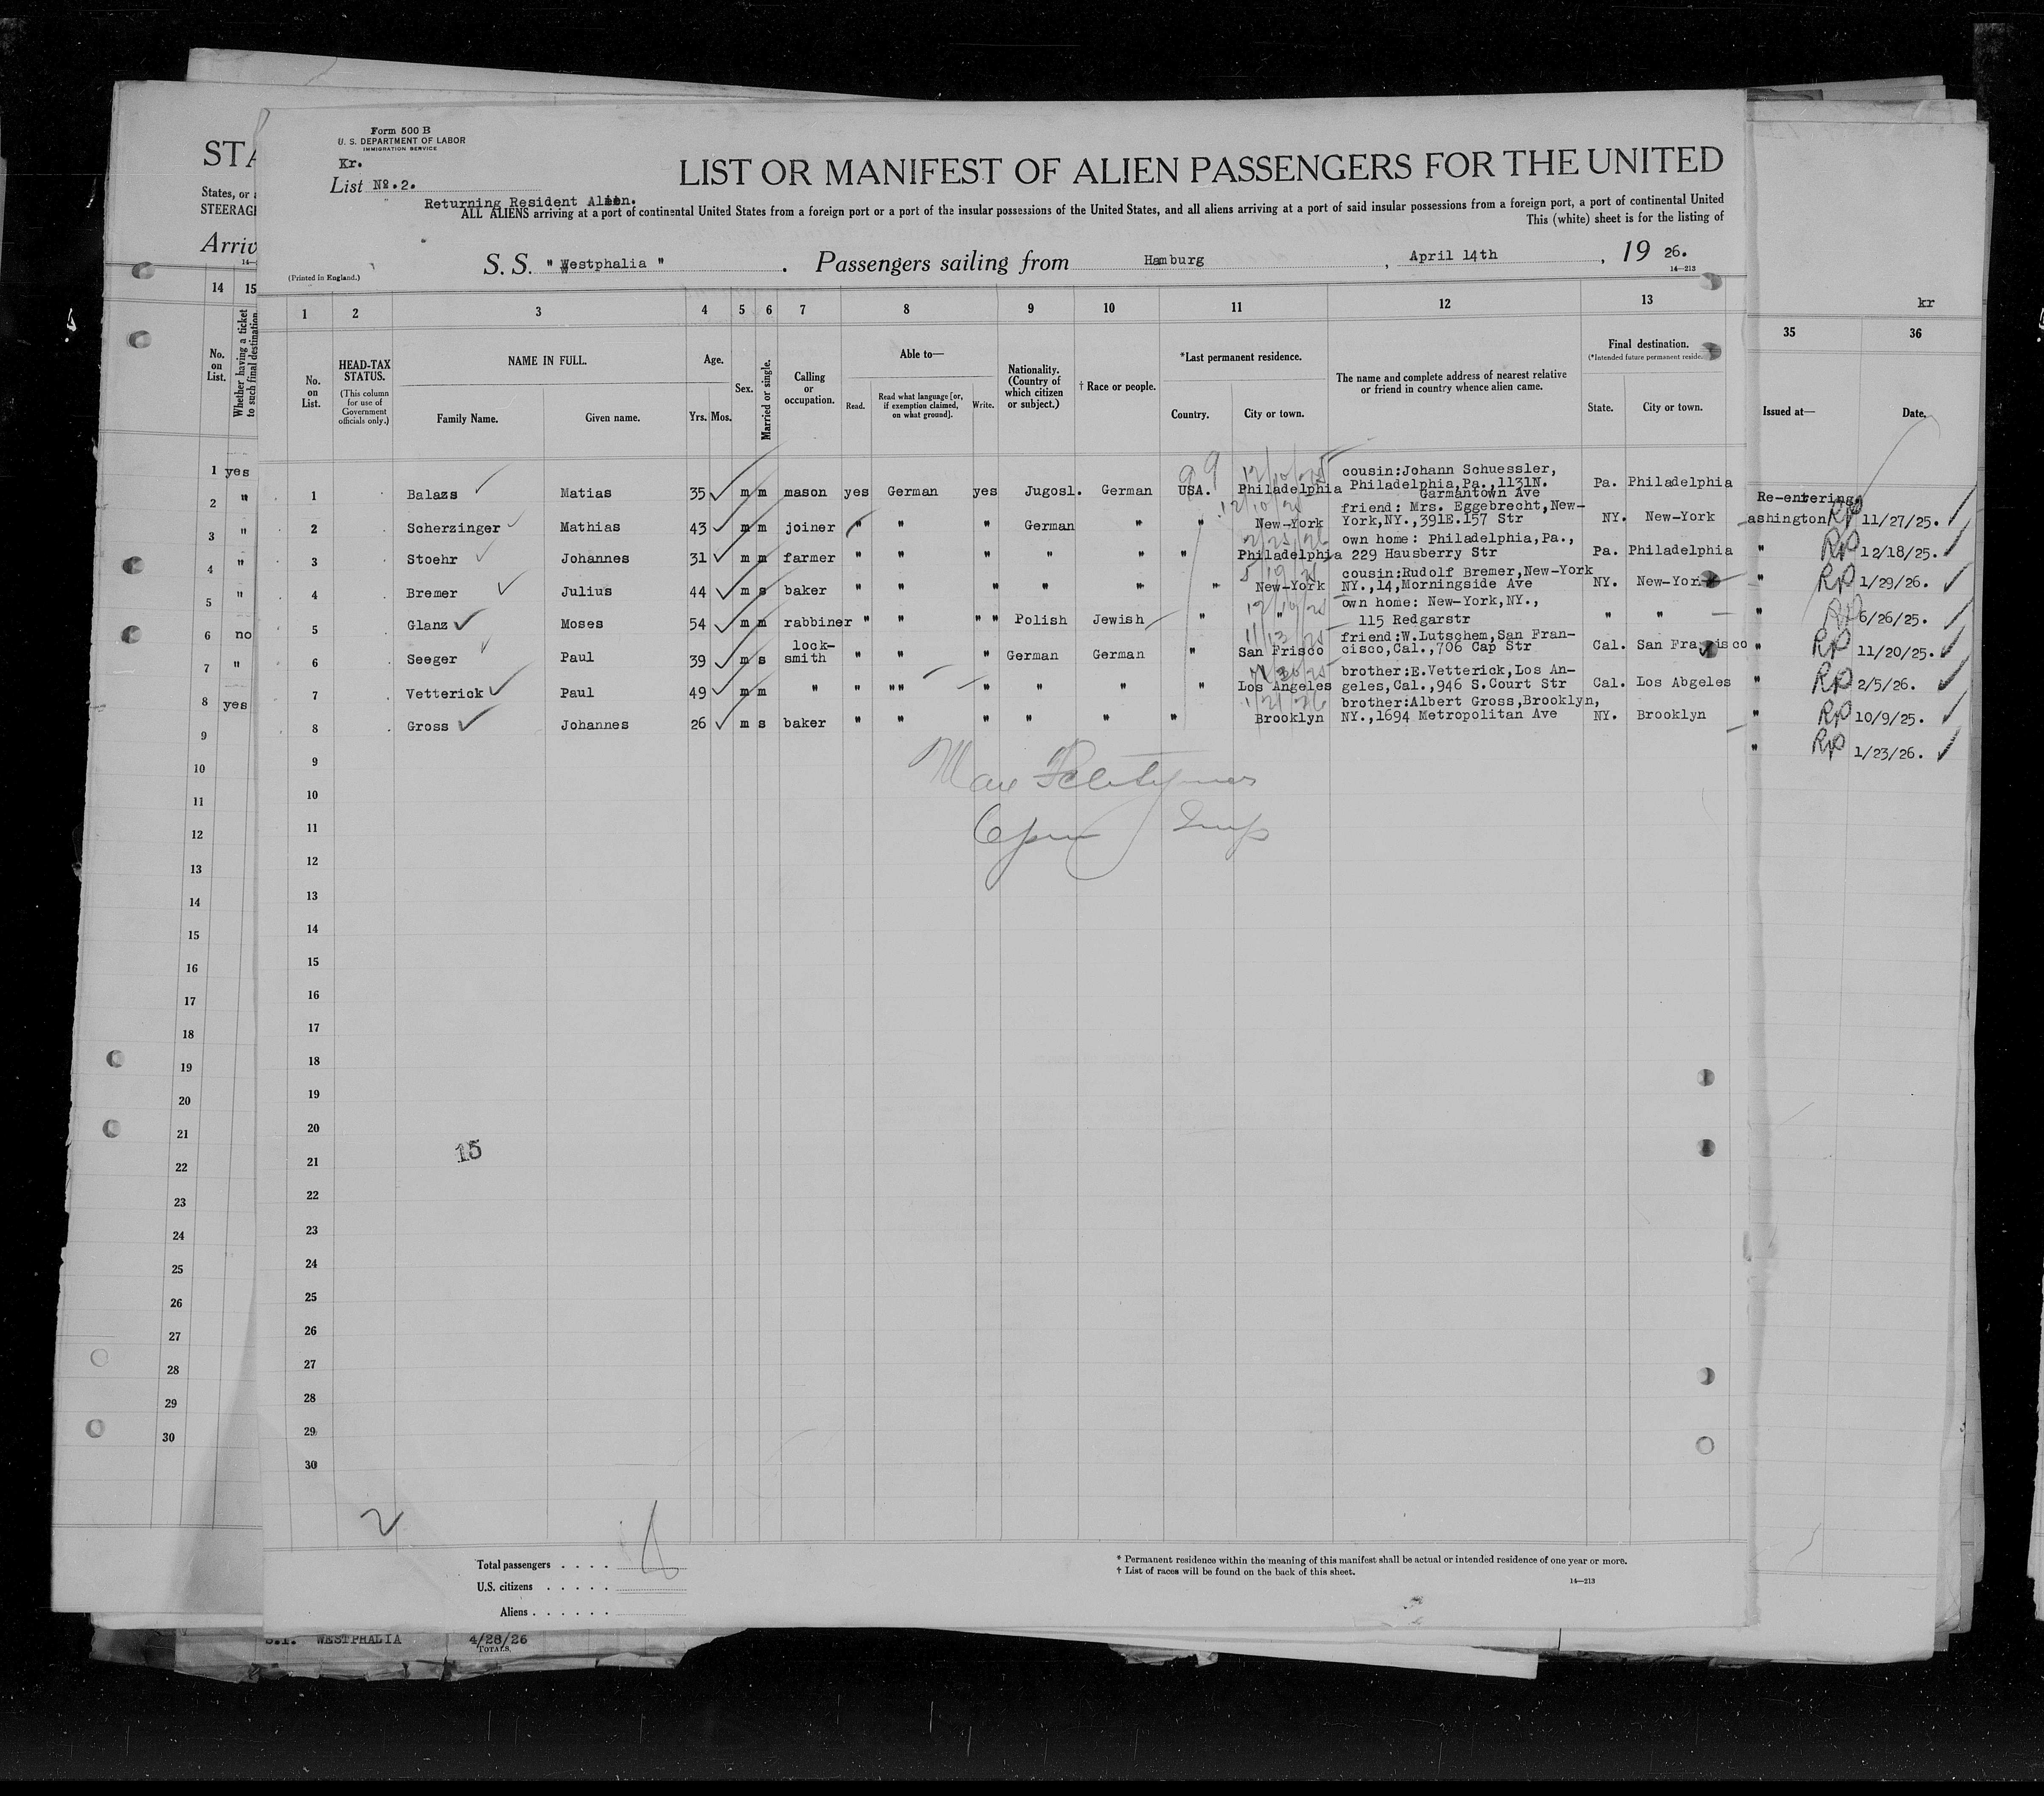 Form 500 B
U. S. DEPARTMENT OF LABOR
IMMIGRATION SERVICE
Kr.
List No.2.
LIST OR MANIFEST OF ALIEN PASSENGERS FOR THE UNITED
Returning Resident Alien.
ALL ALIENS arriving at a port of continental United States from a foreign port or a port of the insular possessions of the United States, and all aliens arriving at a port of said insular possessions from a foreign port, a port of continental United
This (white) sheet is for the listing of
S. S. " Westphalia " . Passengers sailing from Hamburg , April 14th , 19 26.
(Printed in England.)
14—213
1 2 3 4 5 6 7 8 9 10 11 12 13
No. on List.
HEAD-TAX STATUS.
(This column for use of Government officials only.)
NAME IN FULL.
Family Name. Given name.
Age.
Yrs. Mos.
Sex.
Married or single.
Calling or occupation.
Able to—
Read. Read what language [or, if exemption claimed, on what ground]. Write.
Nationality. (Country of which citizen or subject.)
† Race or people.
*Last permanent residence.
Country. City or town.
The name and complete address of nearest relative or friend in country whence alien came.
Final destination.
(*Intended future permanent reside
State. City or town.
cousin:Johann Schuessler,
1 Balazs Matias 35 m m mason yes German yes Jugosl. German USA. Philadelphia Philadelphia,Pa.,1131N. Pa. Philadelphia
Garmantown Ave
friend: Mrs. Eggebrecht,New-
2 Scherzinger Mathias 43 m m joiner " " " German " " New-York York,NY.,391E.157 Str NY. New-York
own home: Philadelphia,Pa.,
3 Stoehr Johannes 31 m m farmer " " " " " " Philadelphia 229 Hausberry Str Pa. Philadelphia
cousin:Rudolf Bremer,New-York
4 Bremer Julius 44 m s baker " " " " " " New-York NY.,14,Morningside Ave NY. New-York
own home: New-York,NY.,
5 Glanz Moses 54 m m rabbiner " " " " Polish Jewish " " 115 Redgarstr " "
lock- friend:W.Lutschem,San Fran-
6 Seeger Paul 39 m s smith " " " German German " San Frisco cisco,Cal.,706 Cap Str Cal. San Francisco
brother:E.Vetterick,Los An-
7 Vetterick Paul 49 m m " " " " " " " " Los Angeles geles,Cal.,946 S.Court Str Cal. Los Abgeles
brother:Albert Gross,Brooklyn,
8 Gross Johannes 26 m s baker " " " " " " Brooklyn NY.,1694 Metropolitan Ave NY. Brooklyn
9
10
11
12
13
14
15
16
17
18
19
20
21
22
23
24
25
26
27
28
29
30
15
2
Total passengers . . . .
U.S. citizens . . . . .
Aliens . . . . . .
* Permanent residence within the meaning of this manifest shall be actual or intended residence of one year or more.
† List of races will be found on the back of this sheet.
14—213
STA
States, or
STEERAG
Arriv
14 15
No. on List.
Whether having a ticket to such final destination.
1 yes
2 "
3 "
4 "
5 "
6 no
7 "
8 yes
9
10
11
12
13
14
15
16
17
18
19
20
21
22
23
24
25
26
27
28
29
30
kr
35 36
Issued at— Date.
Re-entering
ashington RP 11/27/25.
" RP 12/18/25.
" RP 1/29/26.
" RP 6/26/25.
" RP 11/20/25.
" RP 2/5/26.
" RP 10/9/25.
" RP 1/23/26.
S.T. WESTPHALIA 4/28/26
TOTALS.